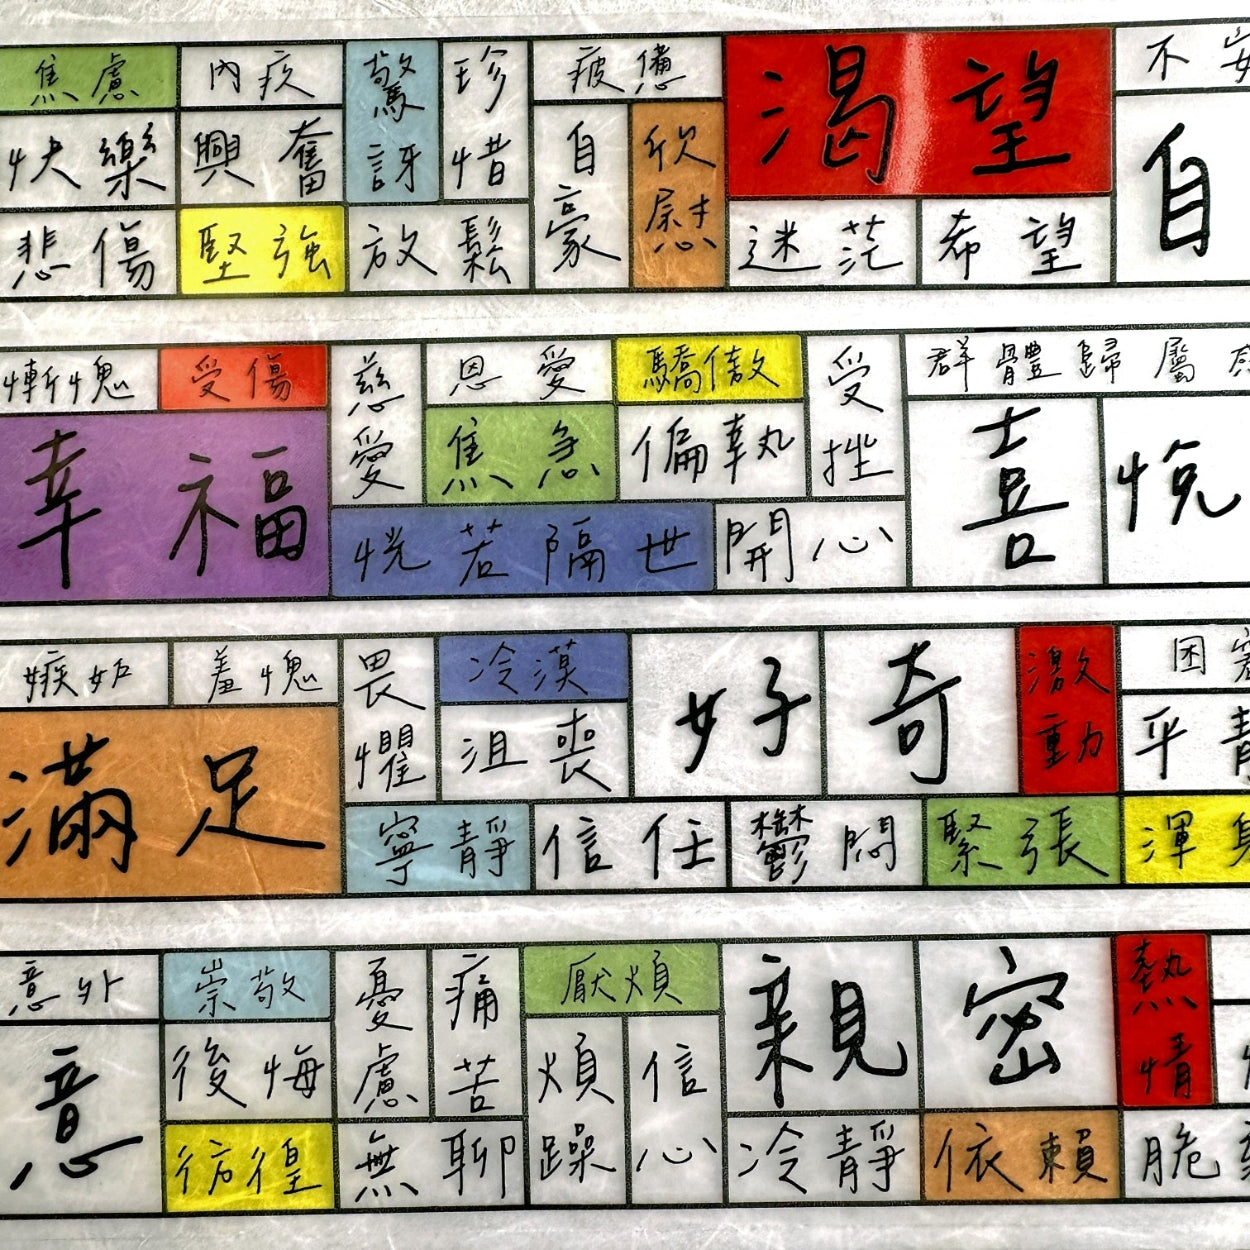 焦慮
內疚
驚訝
珍惜
疲憊
渴望
不安
快樂
興奮
自豪
欣慰
自
悲傷
堅強
放鬆
迷茫
希望
慚愧
受傷
慈愛
恩愛
驕傲
受挫
群體歸屬
幸福
焦急
偏執
喜悅
恍若隔世
開心
嫉妒
羞愧
畏懼
冷漠
好奇
激動
困
滿足
沮喪
平靜
寧靜
信任
鬱悶
緊張
渾身
意外
崇敬
憂慮
痛苦
厭煩
親密
熱情
意
後悔
煩躁
信心
彷徨
無聊
冷靜
依賴
脆